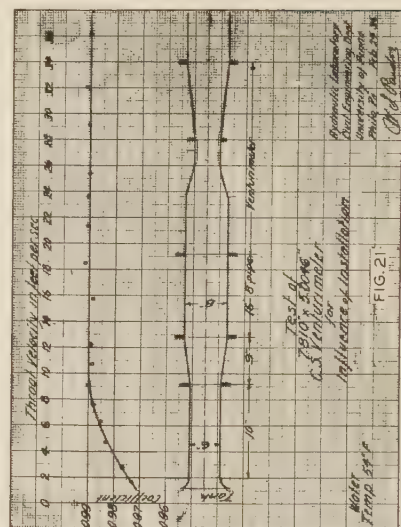 Throat Velocity in feet per sec
0 2 4 6 8 10 12 14 16 18 20 22 24 26 28 30 32 34
Coefficient
0.99
0.98
0.97
0.96
Tank
6
8
10'
9'
16' 8" pipe
Venturimeter
Test of
7.810" x 5.0046"
C.S. Venturimeter
for
Influence of Installation
Water
Temp. 54° F
Hydraulic Laboratory
Civil Engineering Dept
University of Penna
Phila Pa
FIG. 21